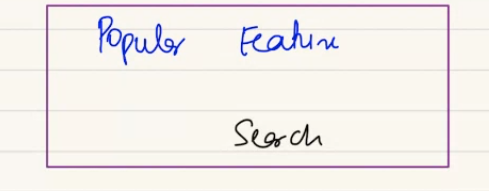 Popular Feature
Search